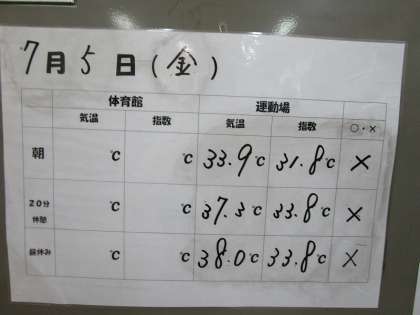 7月5日(金)
体育館 運動場
気温 指数 気温 指数 ○・×
朝 ℃ ℃ 33.9℃ 31.8℃ ×
20分休憩 ℃ ℃ 37.3℃ 33.8℃ ×
昼休み ℃ ℃ 38.0℃ 33.8℃ ×